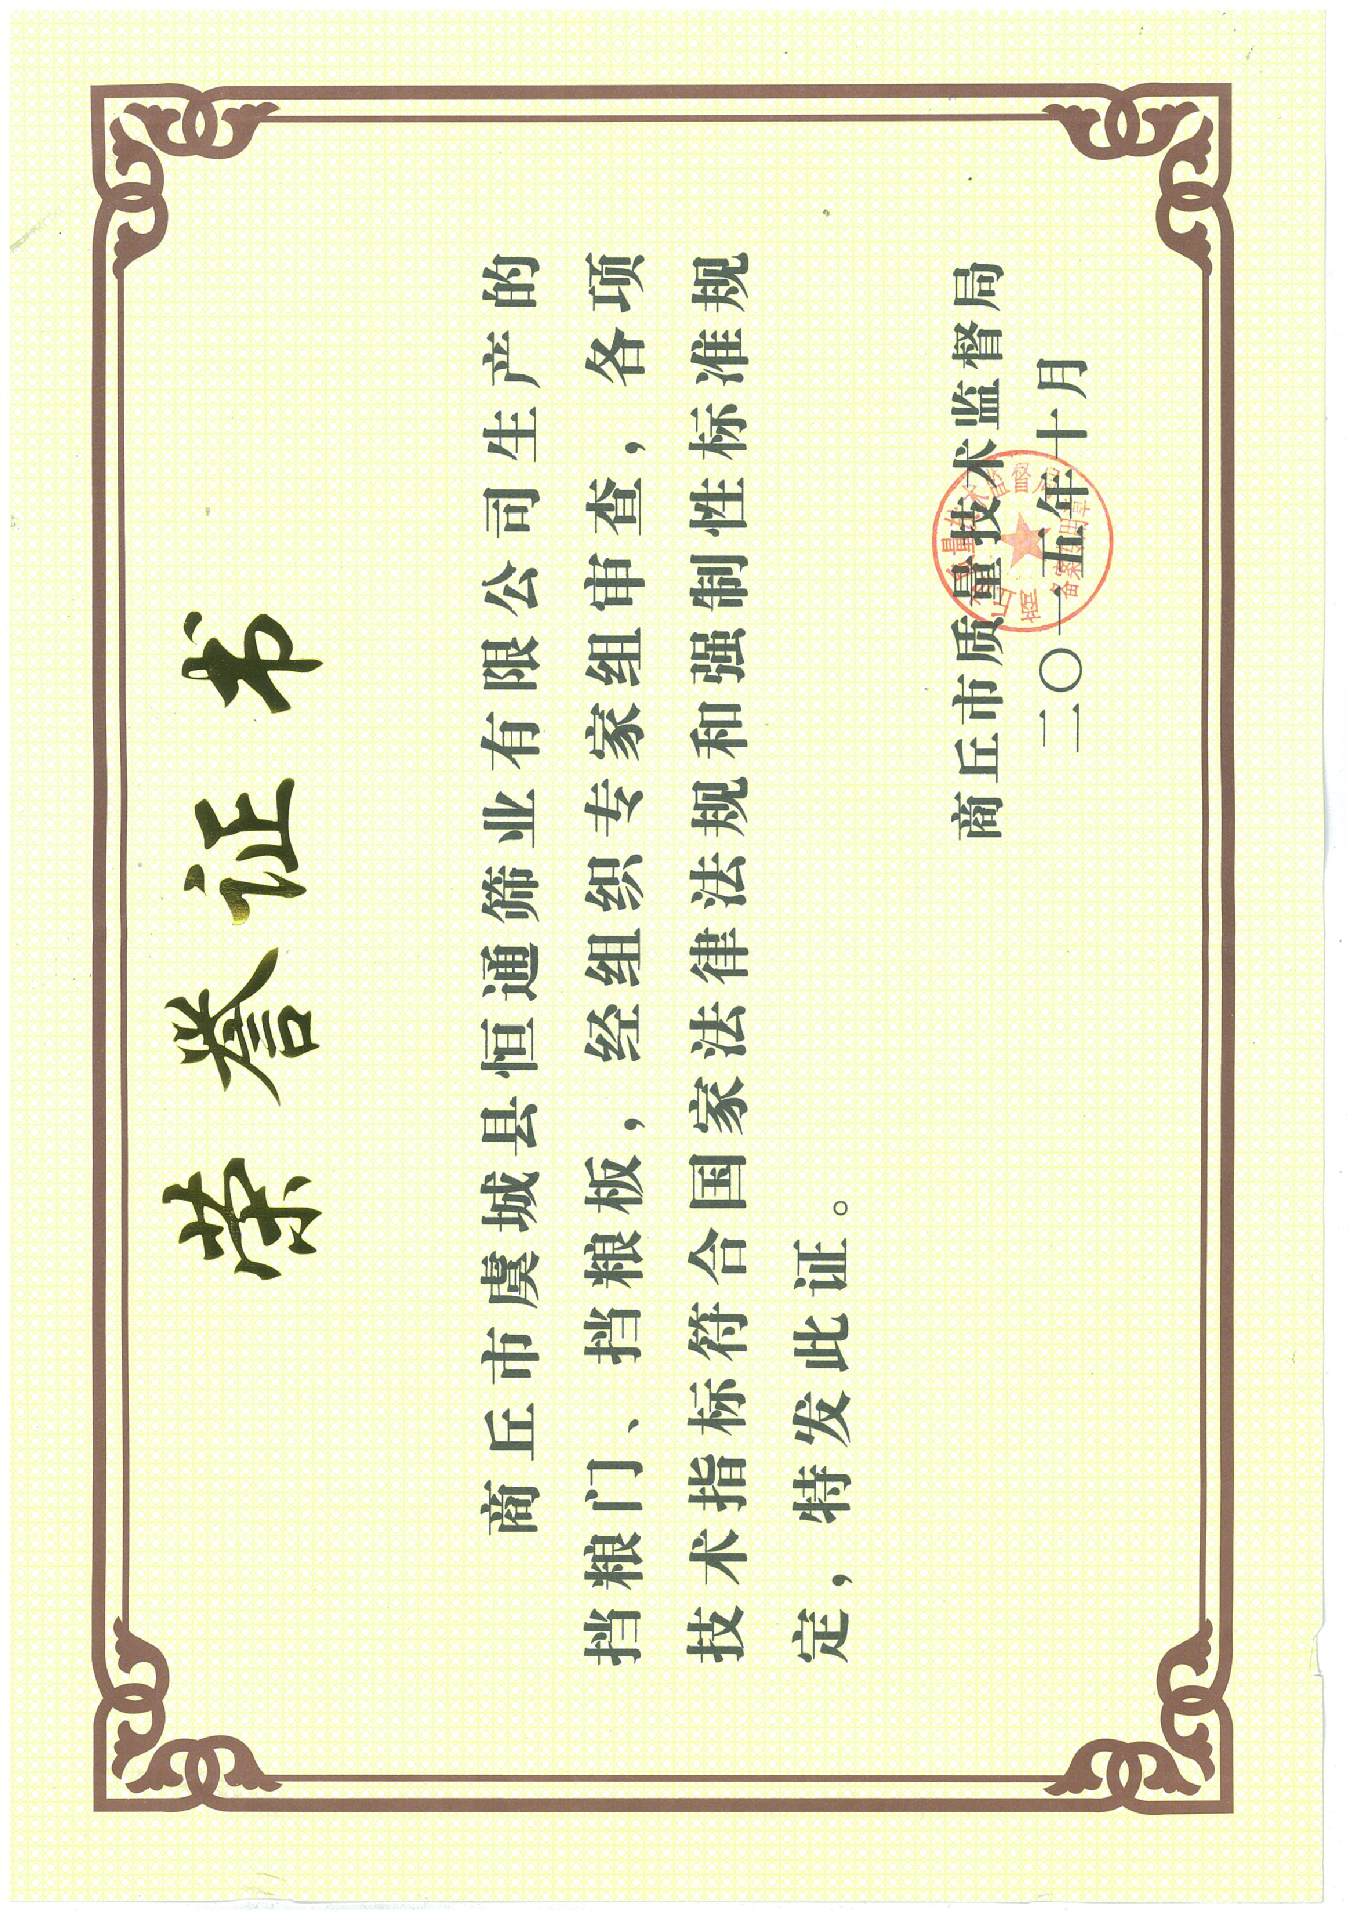 荣誉证书
商丘市虞城县恒通筛业有限公司生产的
挡粮门、挡粮板，经组织专家组审查，各项
技术指标符合国家法律法规和强制性标准规
定，特发此证。
商丘市质量技术监督局
二〇一五年十月
商丘市质量技术监督局
备案专用章